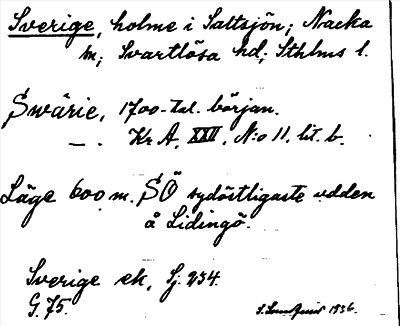 Sverige, holme i Saltsjön; Nacka
sn; Svartlösa hd; Sthlms l.
Swärie, 1700-tal. början.
— . Kr A, XXII, N:o 11, lit. b.
Läge 600 m. SÖ sydöstligaste udden
å Lidingö.
Sverige ek, Sj. 234.
G. 75.
1936.